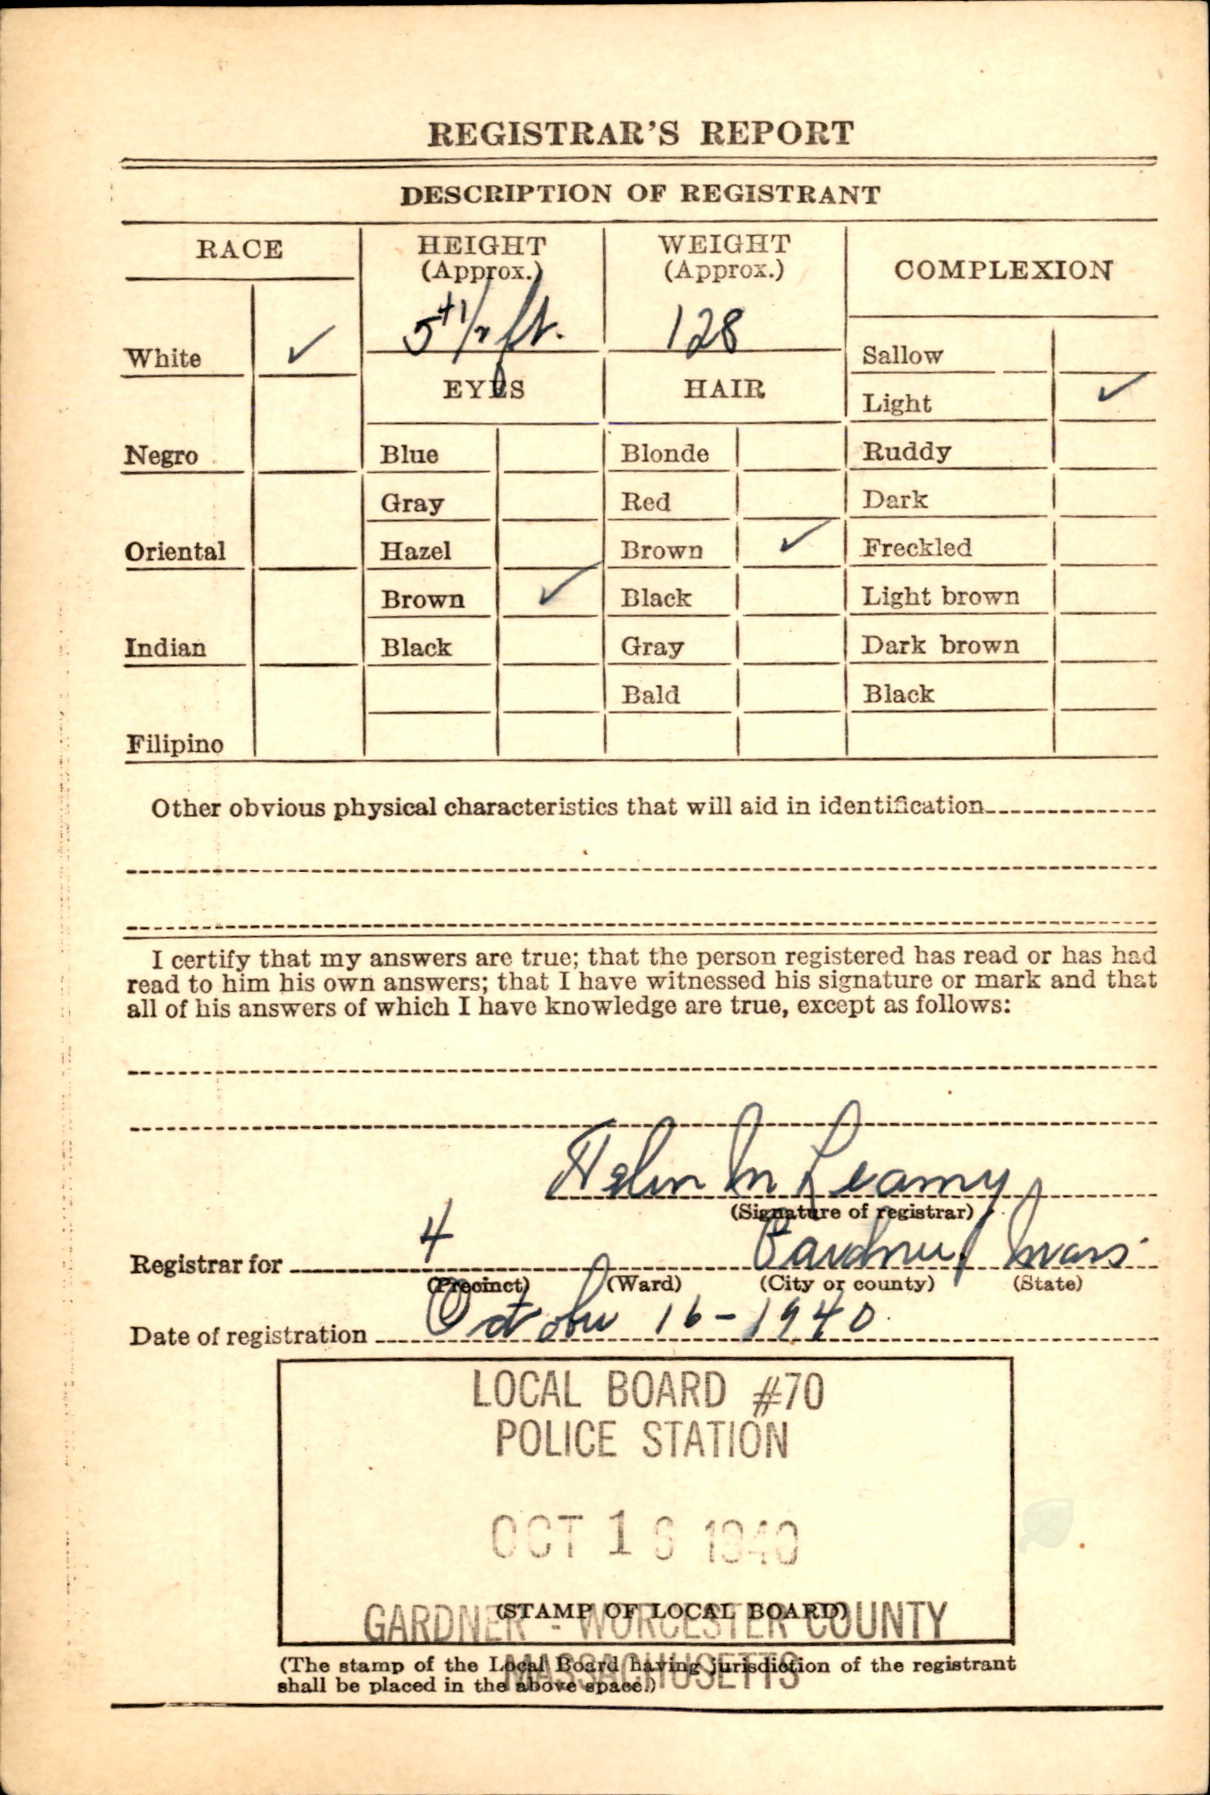 REGISTRAR'S REPORT
DESCRIPTION OF REGISTRANT
RACE
HEIGHT
(Approx.)
WEIGHT
(Approx.)
COMPLEXION
5 4 1/2 ft.
128
White ✓
EYES
HAIR
Sallow
Light ✓
Negro
Blue
Blonde
Ruddy
Gray
Red
Dark
Oriental
Hazel
Brown ✓
Freckled
Brown ✓
Black
Light brown
Indian
Black
Gray
Dark brown
Bald
Black
Filipino
Other obvious physical characteristics that will aid in identification
I certify that my answers are true; that the person registered has read or has had
read to him his own answers; that I have witnessed his signature or mark and that
all of his answers of which I have knowledge are true, except as follows:
Helen M Leamy
(Signature of registrar)
Registrar for 4 Gardner, Mass.
(Precinct) (Ward) (City or county) (State)
Date of registration October 16-1940
LOCAL BOARD #70
POLICE STATION
OCT 16 1940
(STAMP OF LOCAL BOARD)
GARDNER - WORCESTER COUNTY
MASSACHUSETTS
(The stamp of the Local Board having jurisdiction of the registrant
shall be placed in the above space.)